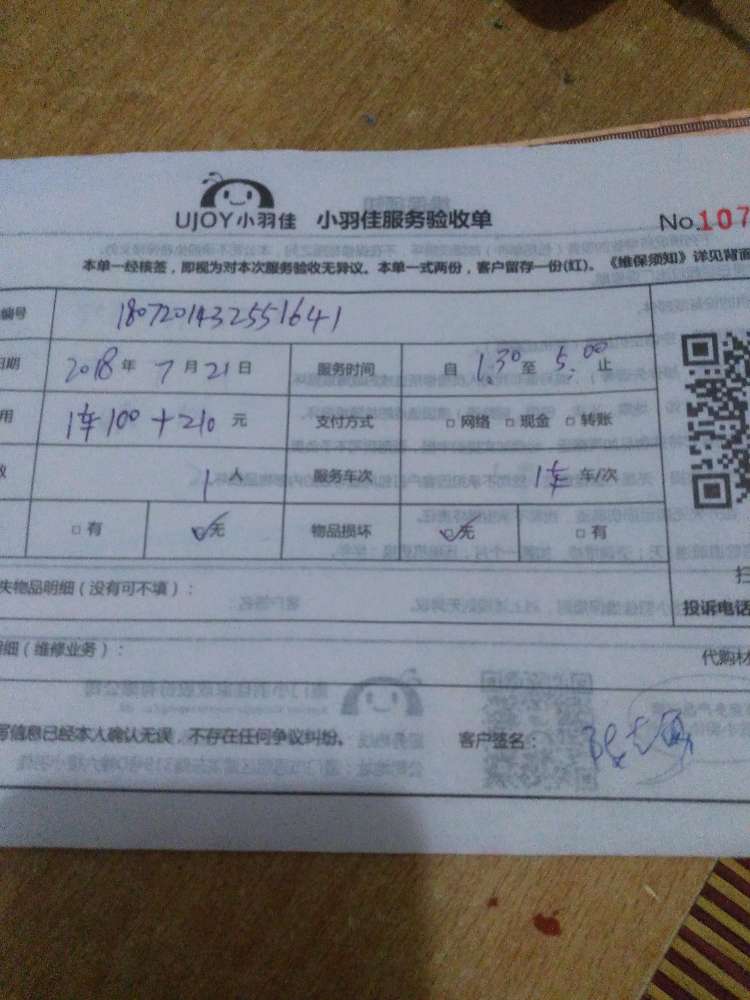 UJOY小羽佳 小羽佳服务验收单 No.107
本单一经核签，即视为对本次服务验收无异议。本单一式两份，客户留存一份(红)。《维保须知》详见背面
编号 1807201432551641
日期 2018 年 7 月 21 日 服务时间 自 1:30 至 5:00 止
用 1车100+210 元 支付方式 □ 网络 □ 现金 □ 转账
数 1 人 服务车次 1车 车/次
□ 有 □ 无 物品损坏 □ 无 □ 有
失物品明细（没有可不填）： 扫
投诉电话
明细（维修业务）： 代购材
写信息已经本人确认无误，不存在任何争议纠纷。 客户签名：